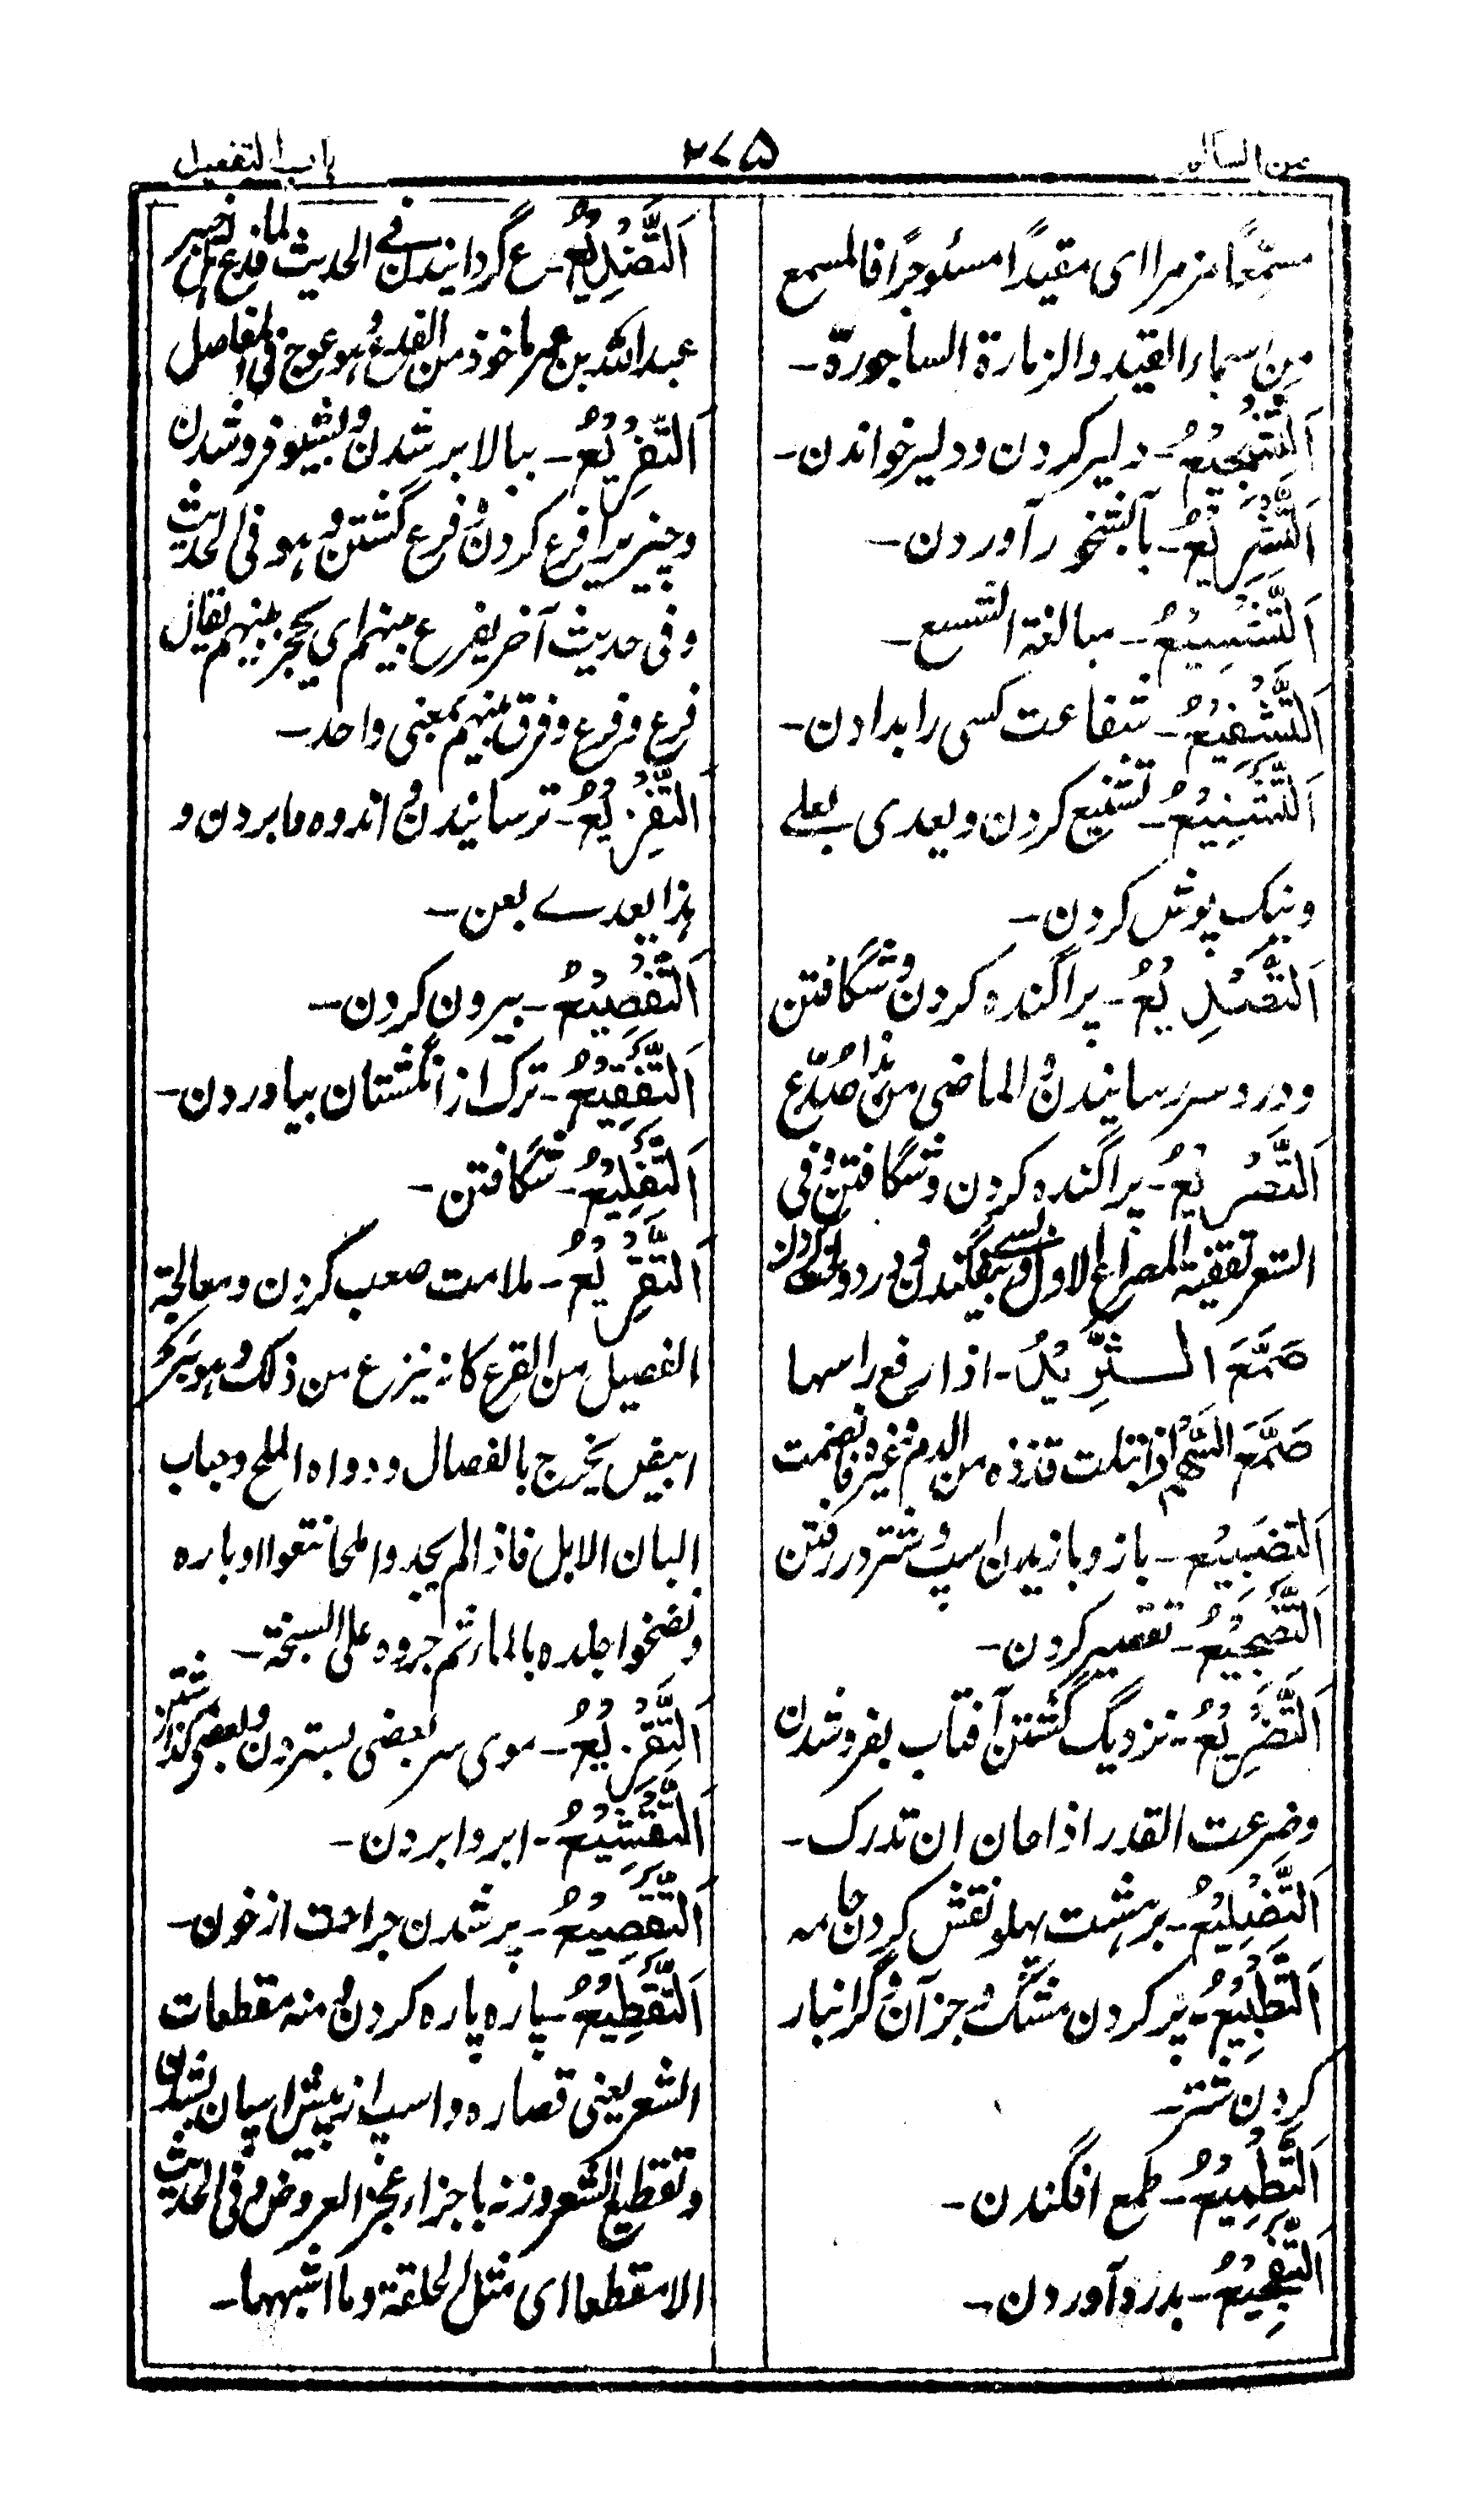 من السالم
۲۷۵
باب التفعیل
مسمّعًا مزمرا ای مقیدًا مسئوجرًا فالمسمع
من اسماء القید والزمارة الساجورة۔
اَلتَّشْجِیْعُ۔ دلیر کردن و دلیر خواندن۔
اَلتَّشْرِیْعُ۔ بآبشخور آوردن۔
اَلتَّشْسِیْعُ۔ مبالغة الشسع۔
اَلتَّشْفِیْعُ۔ شفاعت کسی را بدادن۔
اَلتَّشْنِیْعُ۔ تشنیع کردن و یعدی بعلے
و نیک پوش کردن۔
اَلتَّصْدِیْعُ۔ پراگنده کردن و شگافتن
و درد سر رسانیدن و الماضی من هذا صُدِّع
اَلتَّصْرِیْعُ۔ پراگنده کردن و شگافتن و فی
الشعر تقفیة المصراع الاول و بیفگندن و در دولختی کردن
صَمَّعَ الثَّرِیْدَ۔ اذا رفع راسها
صَمَّعَ السَّهْمُ اذا ابتلت قذذه من الدم و غیره فانضمت
اَلتَّضْبِیْعُ۔ باز و بازیدن اسپ و شتر در رفتن
اَلتَّضْجِیْعُ۔ تقصیر کردن۔
اَلتَّضْرِیْعُ۔ نزدیگ گشتن آفتاب بفروشدن
وضرعت القدر اذا حان ان تدرک۔
اَلتَّضْلِیْعُ۔ برهشت پهلو نقش کردن جامه
اَلتَّطْبِیْعُ۔ پر کردن مشگ و جز آن و گرانبار
کردن شتر۔
اَلتَّطْمِیْعُ۔ طمع افگندن۔
اَلتَّفْجِیْعُ۔ بدرد آوردن۔
اَلتَّفْدِیْعُ۔ گردانیدن فی الحدیث لما فدع اهل خیبر
عبدالله بن عمر ماخوذ من الفدع و هو عوج فی المفاصل
اَلتَّفْرِیْعُ۔ ببالا بر شدن و بشیو فروشدن
و چیزیرا فرع کردن و فرع گشتن و هو فی الحدیث
و فی حدیث آخر یفرع بینهم ای یحجز بینهم یقال
فرع و فرع و فرق بینهم بمعنی واحد۔
اَلتَّفْزِیْعُ۔ ترسانیدن و اندوه وابردن و
هذا یعدے بعن۔
اَلتَّفْصِیْعُ۔ بیرون کردن۔
اَلتَّفْقِیْعُ۔ ترک از انگشتان بیاوردن۔
اَلتَّفْلِیْعُ۔ شگافتن۔
اَلتَّقْرِیْعُ۔ ملامت صعب کردن و معالجة
الفصیل من القرع کانه ینزع من ذلک و هو بثر
ابیض یخرج بالفصال و دواه الملح و حباب
البان الابل فاذا لم یجدوا ملحا نتفوا اوباره
و نضحوا جلده بالماء ثم جروه علی السبخة۔
اَلتَّقْزِیْعُ۔ موی سر بعضی بستردن و بعضی گذاشتن
اَلتَّقْشِیْعُ۔ ابر وابردن۔
اَلتَّقْصِیْعُ۔ پر شدن جراحت از خون۔
اَلتَّقْطِیْعُ۔ پاره پاره کردن و منه مقطعات
الشعر یعنی قصاره و اسپ از پیش اسپان بشدن
و تقطیع الشعر وزنه باجزاء العروض و فی الحدیث
الا مقطعا ای مثل الحلقة و ما اشبهها۔